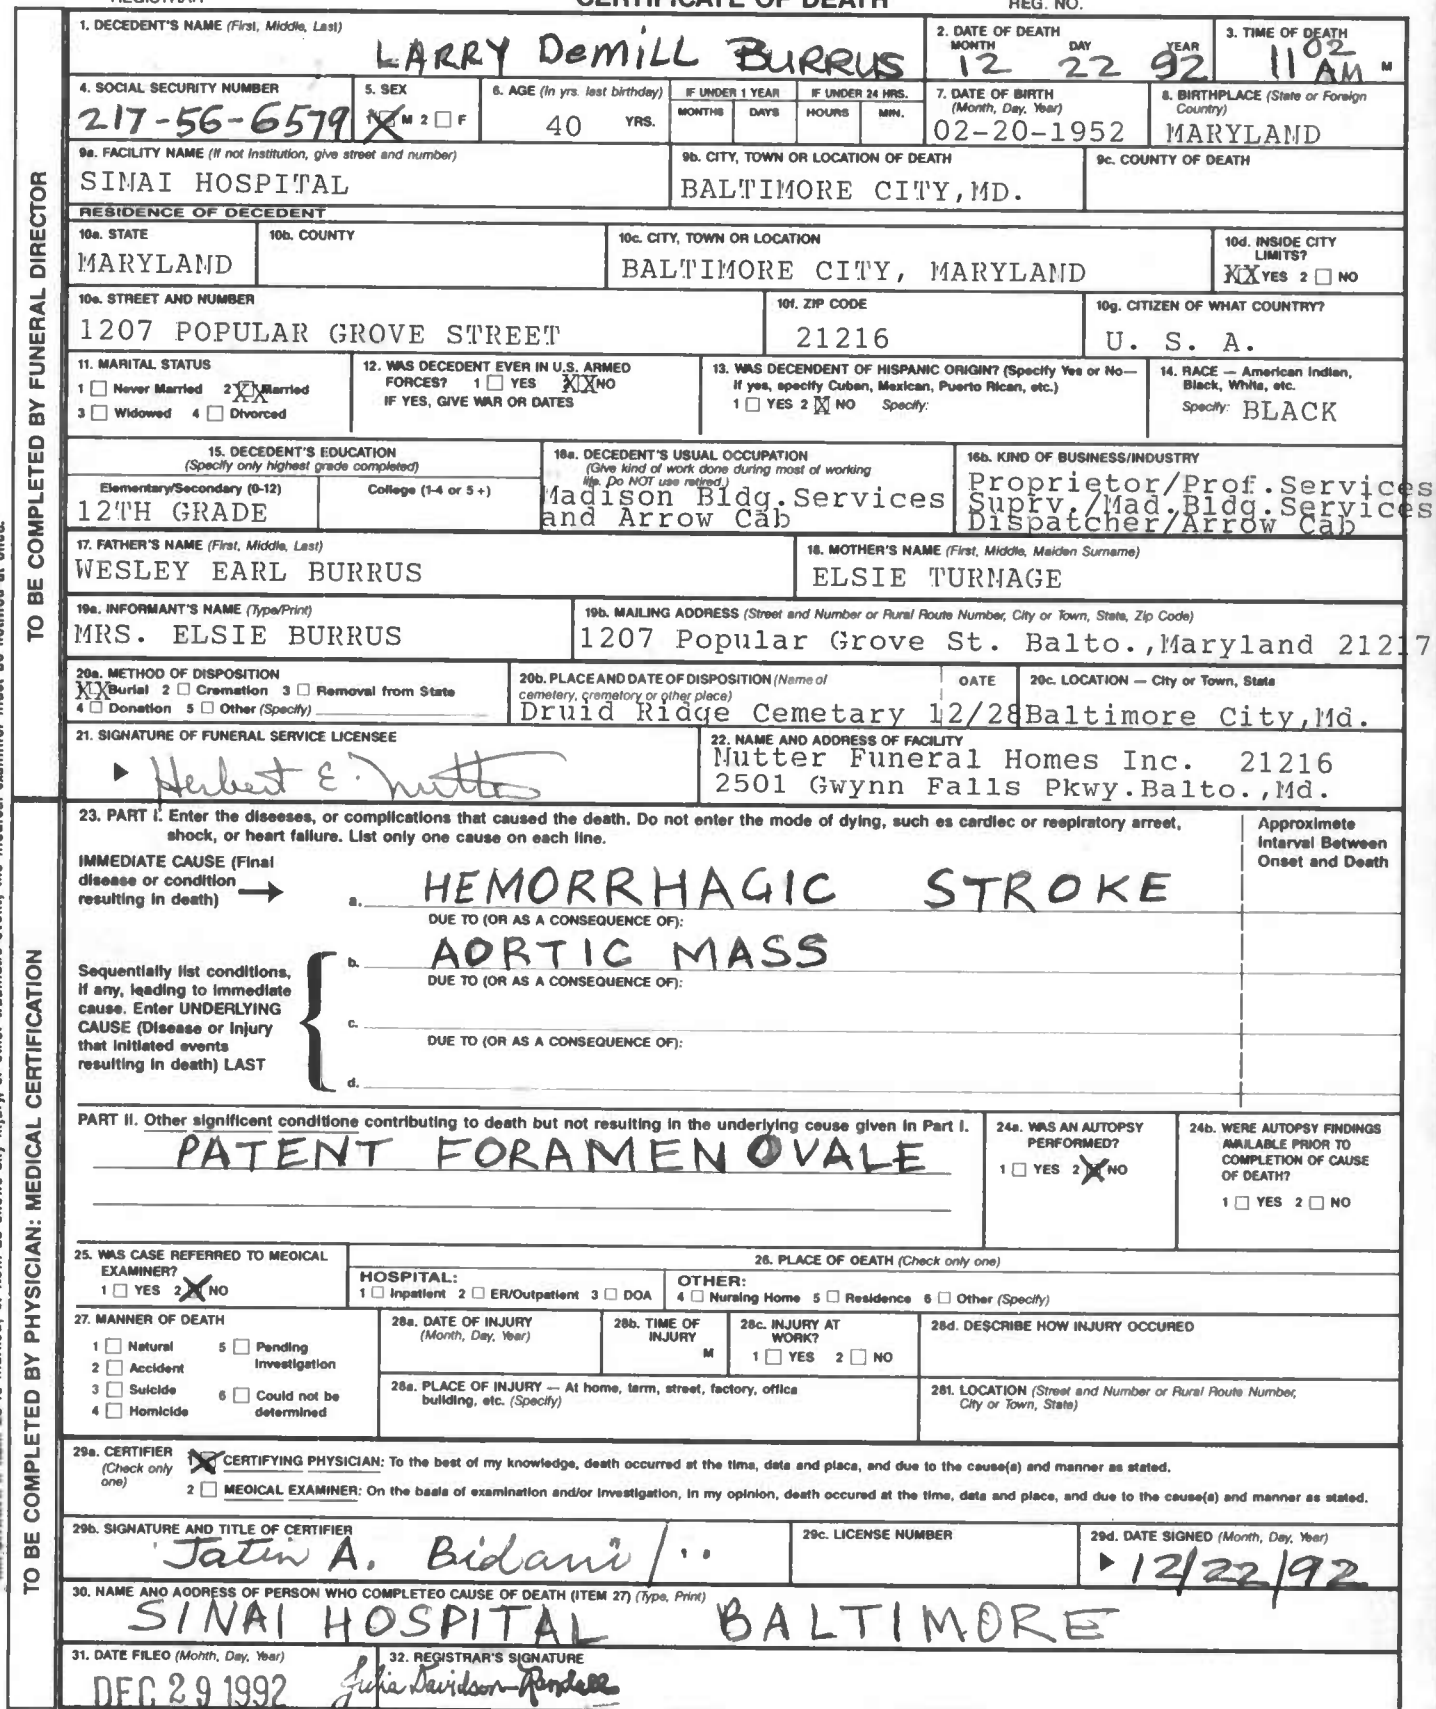 CERTIFICATE OF DEATH
REG. NO.
TO BE COMPLETED BY FUNERAL DIRECTOR
1. DECEDENT'S NAME (First, Middle, Last)
LARRY DeMILL BURRUS
2. DATE OF DEATH
MONTH DAY YEAR
12 22 92
3. TIME OF DEATH
11 02 AM M
4. SOCIAL SECURITY NUMBER
217-56-6579
5. SEX
M 2 F
6. AGE (In yrs. last birthday)
40 YRS.
IF UNDER 1 YEAR
MONTHS DAYS
IF UNDER 24 HRS.
HOURS MIN.
7. DATE OF BIRTH
(Month, Day, Year)
02-20-1952
8. BIRTHPLACE (State or Foreign
Country)
MARYLAND
9a. FACILITY NAME (If not institution, give street and number)
SINAI HOSPITAL
9b. CITY, TOWN OR LOCATION OF DEATH
BALTIMORE CITY,MD.
9c. COUNTY OF DEATH
RESIDENCE OF DECEDENT
10a. STATE
MARYLAND
10b. COUNTY
10c. CITY, TOWN OR LOCATION
BALTIMORE CITY, MARYLAND
10d. INSIDE CITY
LIMITS?
XX YES 2 NO
10e. STREET AND NUMBER
1207 POPULAR GROVE STREET
10f. ZIP CODE
21216
10g. CITIZEN OF WHAT COUNTRY?
U. S. A.
11. MARITAL STATUS
1 Never Married 2 XX Married
3 Widowed 4 Divorced
12. WAS DECEDENT EVER IN U.S. ARMED
FORCES? 1 YES XX NO
IF YES, GIVE WAR OR DATES
13. WAS DECENDENT OF HISPANIC ORIGIN? (Specify Yes or No—
If yes, specify Cuban, Mexican, Puerto Rican, etc.)
1 YES 2 X NO Specify:
14. RACE — American Indian,
Black, White, etc.
Specify: BLACK
15. DECEDENT'S EDUCATION
(Specify only highest grade completed)
Elementary/Secondary (0-12)
College (1-4 or 5+)
12TH GRADE
16a. DECEDENT'S USUAL OCCUPATION
(Give kind of work done during most of working
life. Do NOT use retired.)
Madison Bldg.Services
and Arrow Cab
16b. KIND OF BUSINESS/INDUSTRY
Proprietor/Prof.Services
Suprv./Mad.Bldg.Services
Dispatcher/Arrow Cab
17. FATHER'S NAME (First, Middle, Last)
WESLEY EARL BURRUS
18. MOTHER'S NAME (First, Middle, Maiden Surname)
ELSIE TURNAGE
19a. INFORMANT'S NAME (Type/Print)
MRS. ELSIE BURRUS
19b. MAILING ADDRESS (Street and Number or Rural Route Number, City or Town, State, Zip Code)
1207 Popular Grove St. Balto.,Maryland 21217
20a. METHOD OF DISPOSITION
XX Burial 2 Cremation 3 Removal from State
4 Donation 5 Other (Specify)
20b. PLACE AND DATE OF DISPOSITION (Name of
cemetery, crematory or other place)
DATE
Druid Ridge Cemetary 12/28
20c. LOCATION — City or Town, State
Baltimore City,Md.
21. SIGNATURE OF FUNERAL SERVICE LICENSEE
Herbert E. Nutter
22. NAME AND ADDRESS OF FACILITY
Nutter Funeral Homes Inc. 21216
2501 Gwynn Falls Pkwy.Balto.,Md.
TO BE COMPLETED BY PHYSICIAN: MEDICAL CERTIFICATION
23. PART I. Enter the diseases, or complications that caused the death. Do not enter the mode of dying, such as cardiac or respiratory arrest,
shock, or heart failure. List only one cause on each line.
Approximate
Interval Between
Onset and Death
IMMEDIATE CAUSE (Final
disease or condition
resulting in death)
a. HEMORRHAGIC STROKE
DUE TO (OR AS A CONSEQUENCE OF):
b. AORTIC MASS
DUE TO (OR AS A CONSEQUENCE OF):
Sequentially list conditions,
if any, leading to immediate
cause. Enter UNDERLYING
CAUSE (Disease or injury
that initiated events
resulting in death) LAST
c.
DUE TO (OR AS A CONSEQUENCE OF):
d.
PART II. Other significant conditions contributing to death but not resulting in the underlying cause given in Part I.
PATENT FORAMEN OVALE
24a. WAS AN AUTOPSY
PERFORMED?
1 YES 2 X NO
24b. WERE AUTOPSY FINDINGS
AVAILABLE PRIOR TO
COMPLETION OF CAUSE
OF DEATH?
1 YES 2 NO
25. WAS CASE REFERRED TO MEDICAL
EXAMINER?
1 YES 2 X NO
26. PLACE OF DEATH (Check only one)
HOSPITAL:
1 Inpatient 2 ER/Outpatient 3 DOA
OTHER:
4 Nursing Home 5 Residence 6 Other (Specify)
27. MANNER OF DEATH
1 Natural
2 Accident
3 Suicide
4 Homicide
5 Pending
Investigation
6 Could not be
determined
28a. DATE OF INJURY
(Month, Day, Year)
28b. TIME OF
INJURY
M
28c. INJURY AT
WORK?
1 YES 2 NO
28d. DESCRIBE HOW INJURY OCCURED
28e. PLACE OF INJURY — At home, farm, street, factory, office
building, etc. (Specify)
28f. LOCATION (Street and Number or Rural Route Number,
City or Town, State)
29a. CERTIFIER
(Check only
one)
X CERTIFYING PHYSICIAN: To the best of my knowledge, death occurred at the time, date and place, and due to the cause(s) and manner as stated.
2 MEDICAL EXAMINER: On the basis of examination and/or investigation, in my opinion, death occured at the time, date and place, and due to the cause(s) and manner as stated.
29b. SIGNATURE AND TITLE OF CERTIFIER
Jatin A. Bidani
29c. LICENSE NUMBER
29d. DATE SIGNED (Month, Day, Year)
12/22/92
30. NAME AND ADDRESS OF PERSON WHO COMPLETED CAUSE OF DEATH (ITEM 27) (Type, Print)
SINAI HOSPITAL BALTIMORE
31. DATE FILED (Month, Day, Year)
DEC 29 1992
32. REGISTRAR'S SIGNATURE
Julia Davidson-Randall